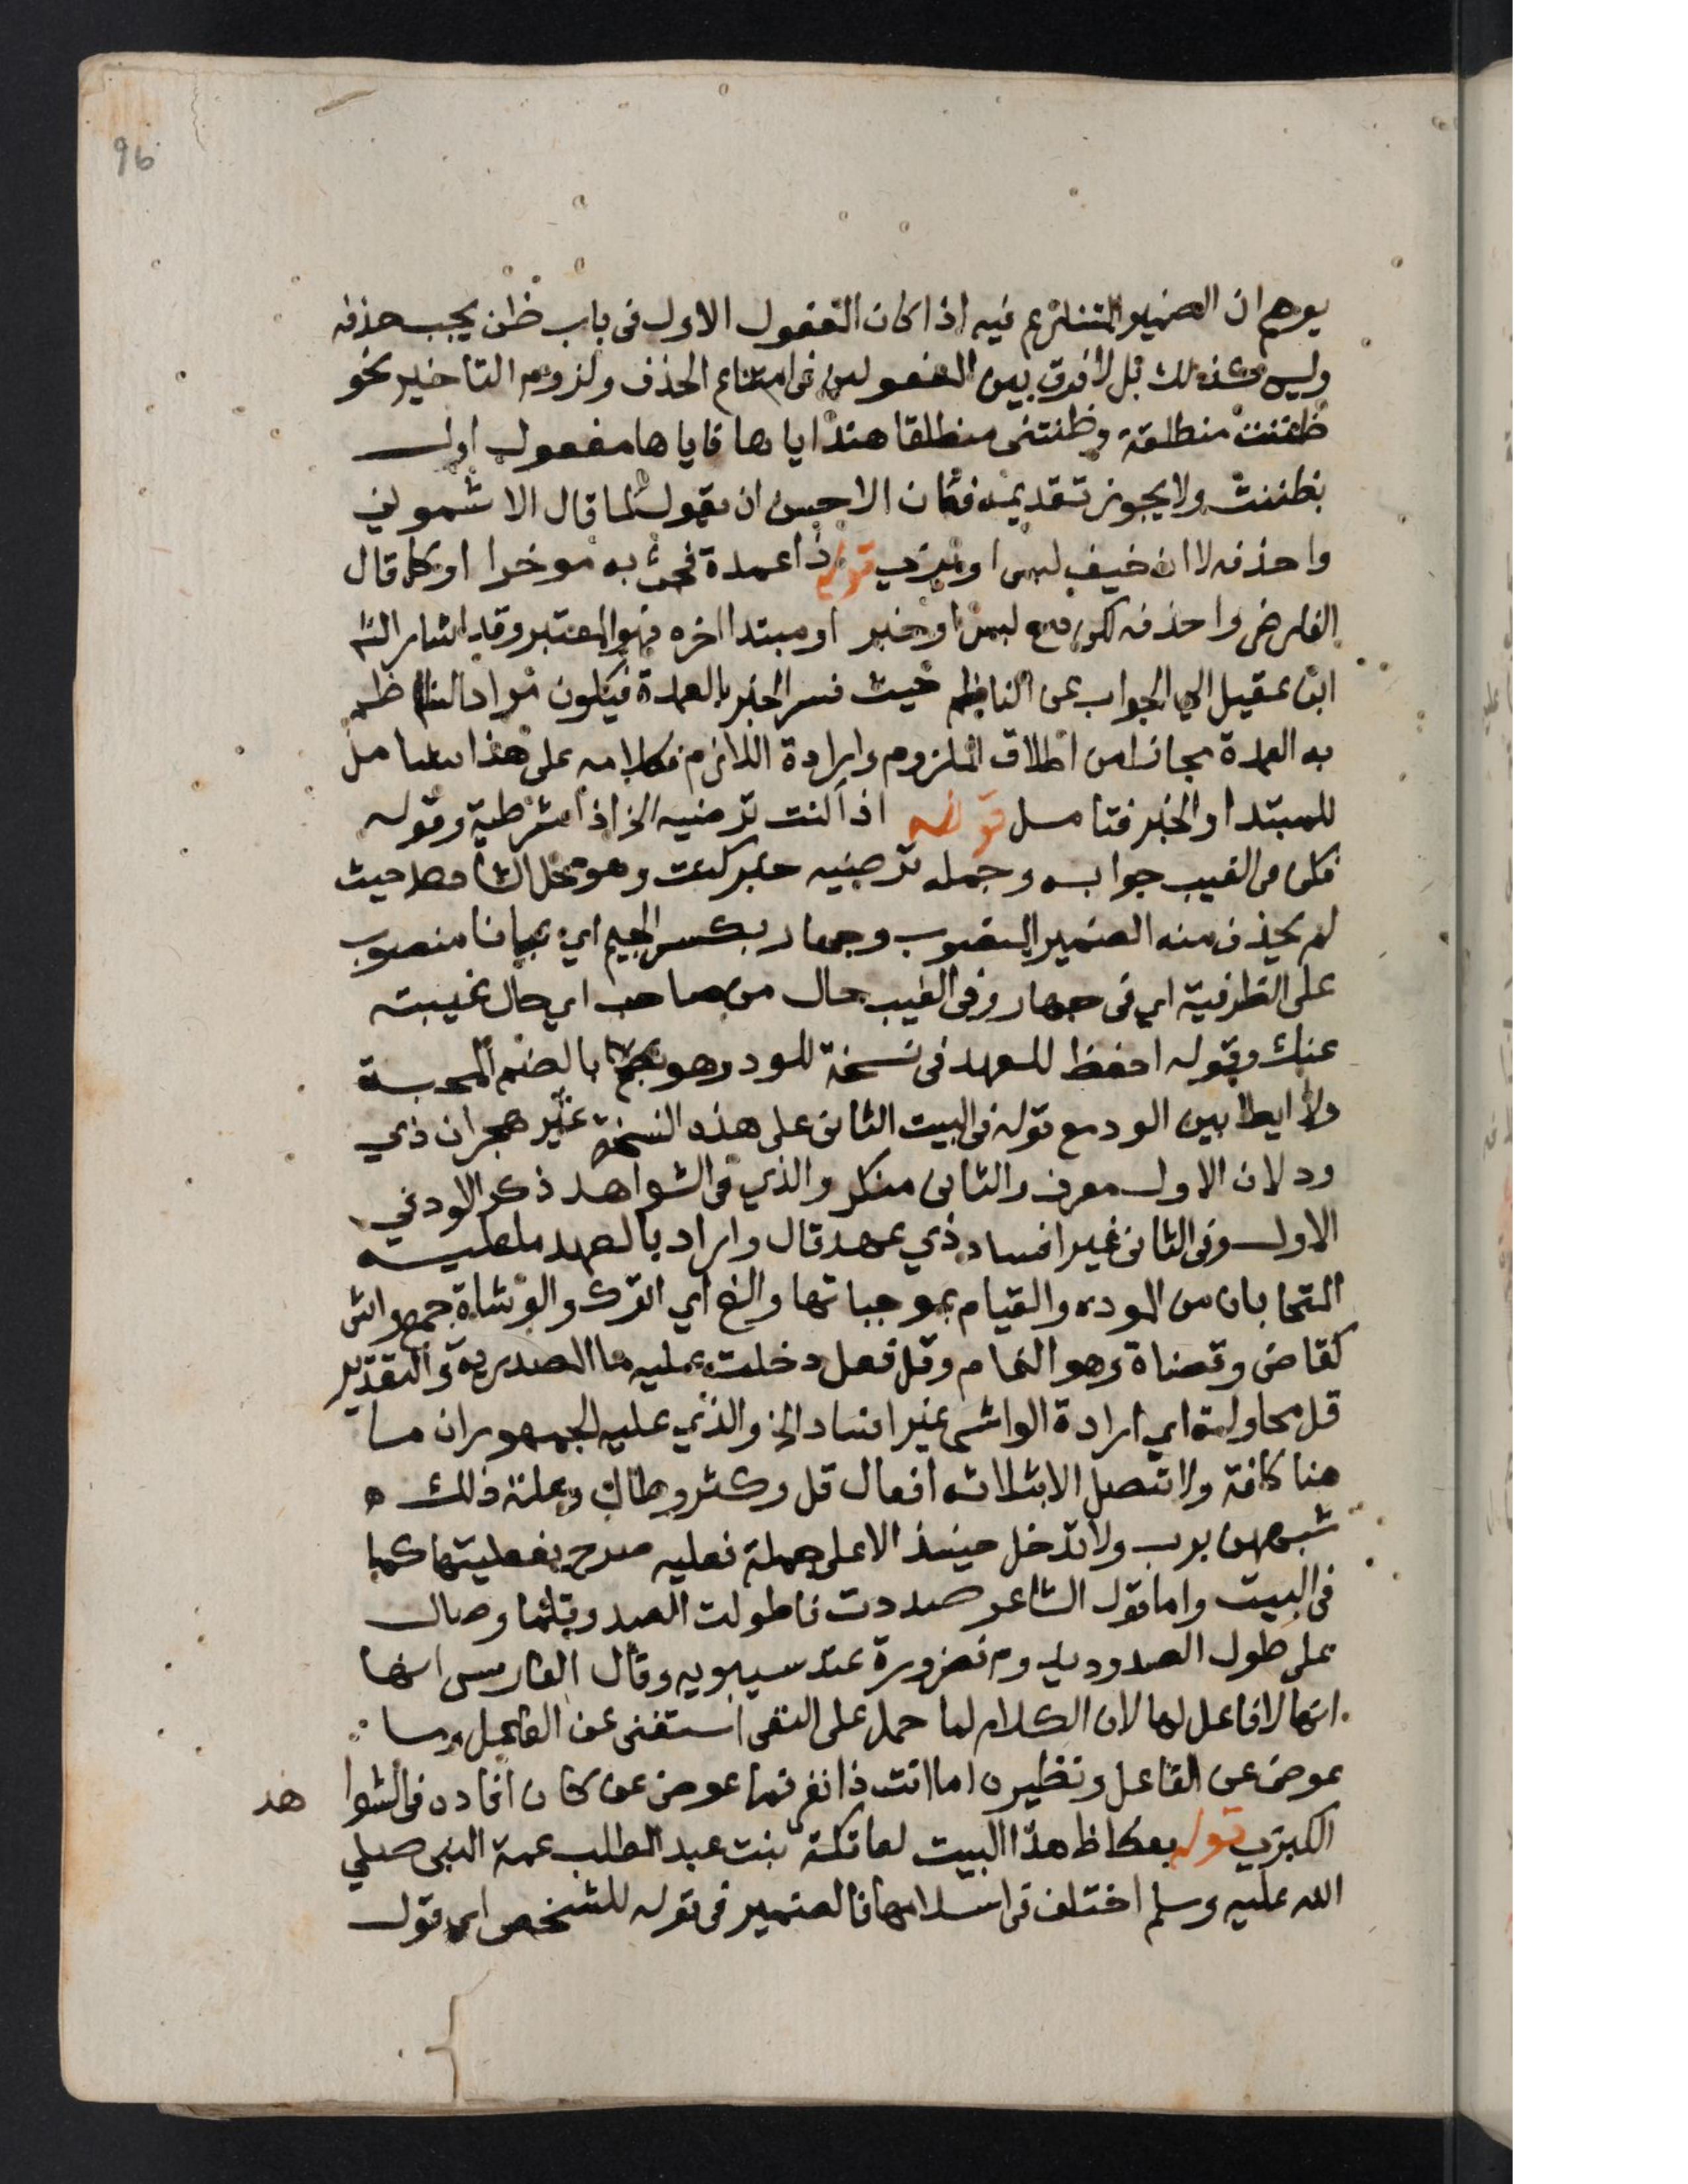 96
يوهم ان الضمير المتنازع فيه اذا كان المفعول الاول في باب ظن يجب حذفه
وليس كذلك بل لا فرق بين المفعولين في امتناع الحذف ولزوم التاخير نحو
ظننت منطلقة وظنتني منطلقا هندا اياها فاياها مفعول اول
بظننت ولا يجوز تقديمه فكان الاحسن ان يقول كما قال الاشموني
واحذفه لا ان خيف لبس او يرى قوله ذا عمدة فجئ به موخرا او كما قال
الفارضي واحذفه لكن مع لبس او خبر او مبتدا اخره فهو المعتبر وقد اشار اليه
ابن عقيل الي الجواب عن الناظم حيث فسر الخبر بالعمدة فيكون مراد الناظم
به العمدة مجازا من اطلاق الملزوم وارادة اللازم فكلامه على هذا شامل
للمبتدا والخبر فتامل قوله اذا كنت ترضيه الخ اذا شرطية وقوله
فكن في الغيب جوابه وجملة ترضيه خبر كنت وهو محل الشاهد حيث
لم يحذف منه الضمير المنصوب وجهار بكسر الجيم اي عيانا منصوب
على الظرفية اي في جهار وفي الغيب حال من صاحب اي حال غيبته
عنك وقوله احفظ للعهد في نسخة للود وهو بالضم المحبة
ولا ايطا بين الود مع قوله في البيت الثاني على هذه النسخة غير هجران ذي
ود لان الاول معرف والثاني منكر والذي في الشواهد ذكر الاود في
الاول وفي الثاني غير افساد ذي عهد قال واراد بالعهد ما عليه
المتحابان من الموده والقيام بموجباتها والغ اي اترك والوشاة جمع واش
كقاض وقضاة وهو النمام وقل فعل دخلت عليه ما المصدرية والتقدير
قل محاولة اي ارادة الواشي غير افساد الخ والذي عليه الجمهور ان ما
هنا كافة ولا تتصل الا بثلاثه افعال قل وكثر وطال وعلة ذلك ه
شبههن برب ولا تدخل حينئذ الا على جملة فعليه صرح بفعليتها كما
في البيت واما قول الشاعر صددت فاطولت الصدود وقلما وصال
على طول الصدود يدوم فضرورة عند سيبويه وقال الفارسي انها
انها لا فاعل لها لان الكلام لما حمل على النفي استغنى عن الفاعل وما
عوض عن الفاعل ونظيره اما انت ذا نفر فما عوض عن كان افاده في الشوا هد
الكبرى قوله بعكاظ هذا البيت لعاتكة بنت عبد المطلب عمة النبي صلي
الله عليه وسلم اختلف في اسلامها فالضمير في قوله للشخص اي قول